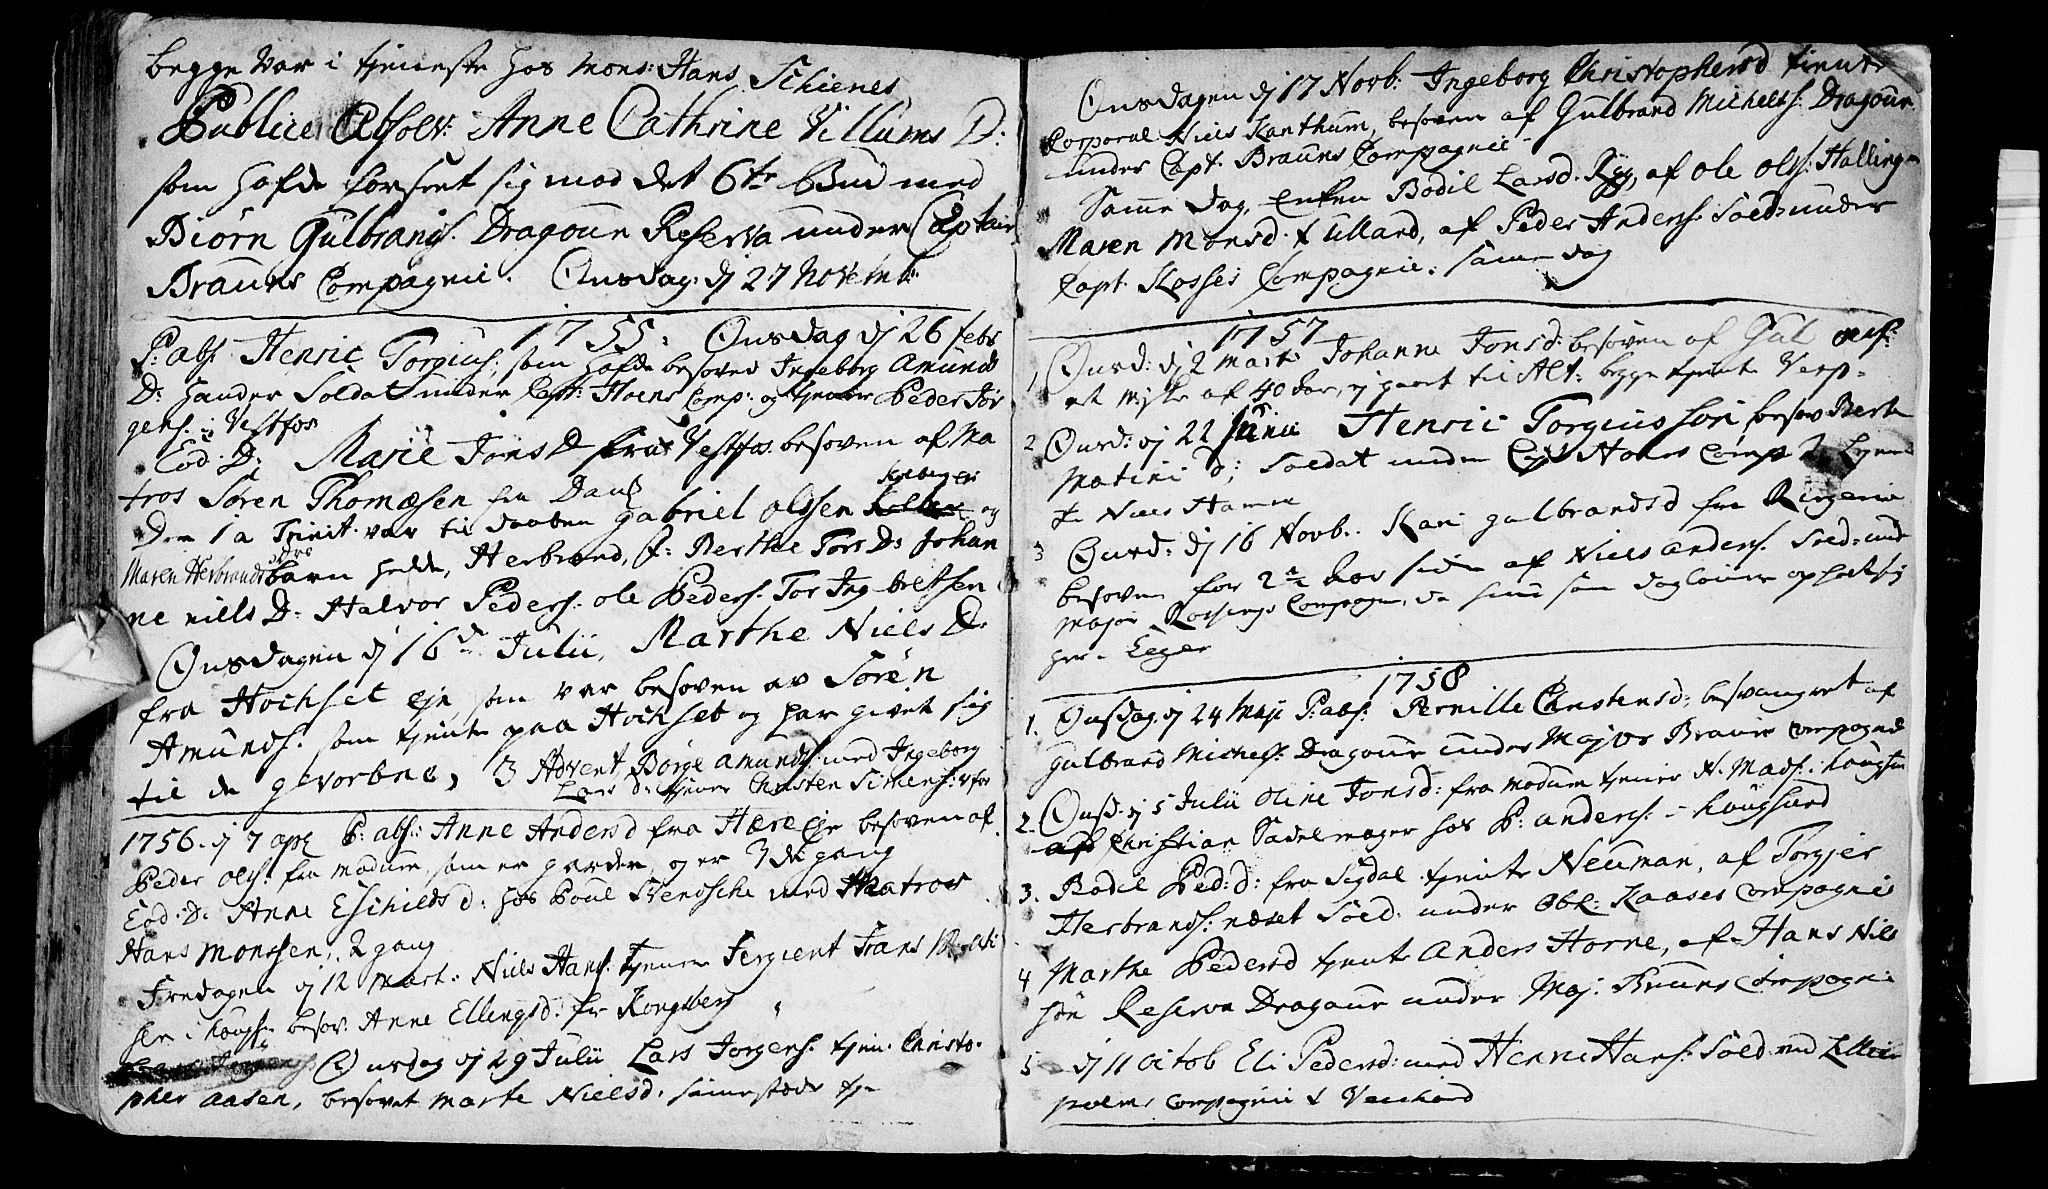 begge var i tjeneste hos Mons: Hans Schienes
Publice Absolv: Anne Cathrine Villums D:
som hafde forseet sig mod det 6te Bud med
Biørn Gulbrands. Dragoun Reserva under Captain
Brauns Compagnie. Onsdag: dj 27 Novemb:
1755: Onsdag dj 26 febr
P: abs: Henric Torgius: som hafde besoved Ingeborg Amunds
D: hander Soldat under Capt: Hoens Comp: og tjener Peder Jør
gens. i Vestfos
Eod. D: Marie Jons D fra Vestfos besoven af Ma
tros Søren Thomæsen fra
Dom 1a Trinit. var til daaben Gabriel Olssen og
Maren Herbrands barn holdt, Herbrand, f: Berthe Tors D: Johan
ne nills D: Halvor Peders: ole Peders: Tor Ingebretsen
Onsdagen dj 16de Julii, Marthe Niels D:
fra Hochset eje, som var besoven av Søren
Amunds. som tjente paa Hochset og har givet sig
til de gevorbne, 3 Advent Børge Amunds: med Ingeborg
Lars D: tjener Christen Simens:
1756. dj 7 apr P: abs: Anne Andersd fra Hære Eje besoven af
Peder Ols: fra Modum som er garder og er 3de gang
Eod. D: Anne Eschilds d: hos Poul Svendsche med Matros
Hans Monssen, 2 gang
Fredagen dj 12 Mart: Niels Hans: tjener Sergient Frans
her i Hougs besov: Anne Ellingsd: fra Kongsberg
Onsdag dj 29 Julii Lars Jorgens. tjen: Christo-
pher Aasen, besovet Marte Nielsd: samestæds tje
Onsdagen dj 17 Novb: Ingeborg Christophersd tiente
Corporal Niels Kanthum, besoven af Gulbrand Michels: Dragoun
under Capt. Brauns Compagnie
Samme dag, Enken Bodil Larsd. Ryg, af Ole Ols: Halling
Maren Monsd. Ulland, af Peder Anders: Sold: under
Capt. Kosses Compagnie. samme dag
1757
1, Onsd: dj 2 Marti Johanne Jonsd: besoven af Gul Ols:
et Myste af 40 Aar, ej gaaet til Alt: begge tjente Vesp-
2 Onsd: dj 22 Junii Henric Torgiussøn besov Berte
Matini d: Soldat under Capt Hoens Comp
Niels Hamre
3 Onsd: dj 16 Novb: Kari Gulbrandsd fra Ringerie
besoven for 2½ Aar siden af Niels Anders. Sold: und
Major Rossings Compagn, da hun som daglønner opholt sig
her i Eger
1758
1. Onsdag dj 24 Maji P: abs: Pernille Christensd: besvangret af
Gulbrand Michels: Dragoun under Major Brauns Compagnie
2. Onsd: dj 5 Julii Oline Jonsd: fra Modum tjener H. Mads: i Hougsun
Christian Sadelmager hos P: Anders: i Hougsund
3. Bodil Ped: d: fra Sigdal tjente Neuman, af Torgjer
Herbrands: næset Sold: under Obl: Kaases Compagnie
4 Marthe Pedersd tjente Anders Horne, af Hans Nils
søn Reserva Dragoun under Maj: Bruns Compagni
5 dj 11 Octob Eli Pedersd: med Henric Hans: Sold. ved Lillien
polms Compagnie